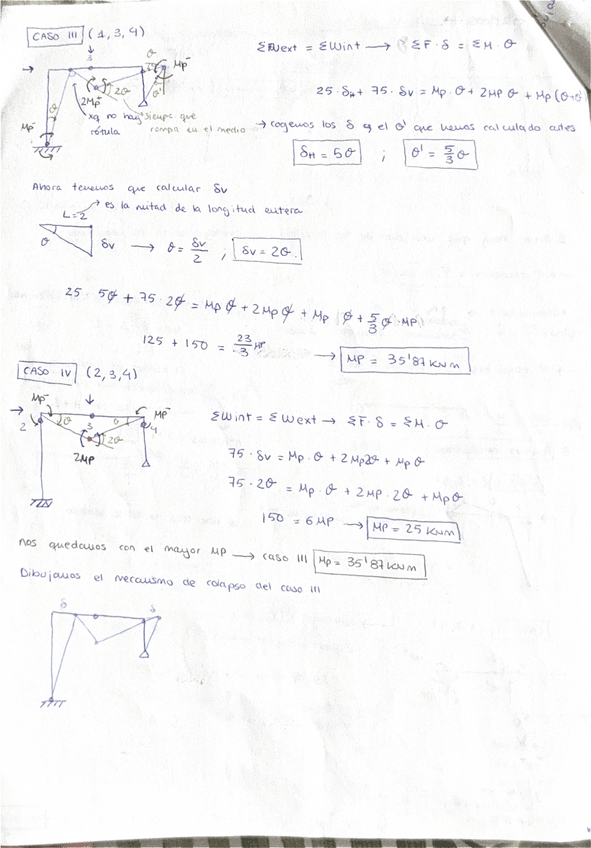 CASO III (1, 3, 4)
ΣWext = ΣWint → ΣF·δ = ΣM·θ
3
θ
Mp⁻
δ
2θ
θ'
2Mp
θ
Mp⁻
xq no hay rótula
Siempre que rompa en el medio
25·δH + 75·δv = Mp·θ + 2Mp θ + Mp(θ+θ'
→ cogemos los δ y el θ' que hemos calculado antes
δH = 5θ ; θ' = 5/3 θ
Ahora tenemos que calcular δv
L=2 → es la mitad de la longitud entera
θ δv → θ = δv/2 ; δv = 2θ.
25·5θ + 75·2θ = Mp θ + 2Mp θ + Mp θ + 5/3 θ·Mp
125 + 150 = 23/3 MP → MP = 35'87 KNm
CASO IV (2, 3, 4)
Mp⁻
MP⁻
2
θ
3
θ
4
2θ
2MP
ΣWint = ΣWext → ΣF·δ = ΣM·θ
75·δv = Mp·θ + 2Mp2θ + Mpθ
75·2θ = Mp·θ + 2MP·2θ + Mpθ
150 = 6MP → MP = 25 KNm
Nos quedamos con el mayor MP → caso III Mp = 35'87KNm
Dibujamos el mecanismo de colapso del caso III
δ δ